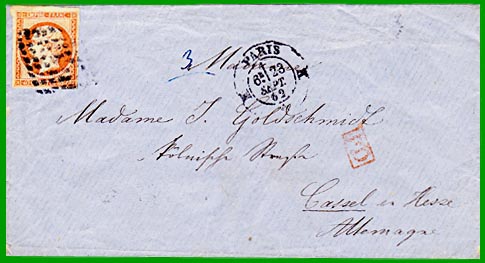 EMPIRE FRANC.
3
PARIS
6E
23
SEPT.
62
Madame J. Goldschmidt
Kölnische Straße
P.D.
Cassel en Hesse
Allemagne